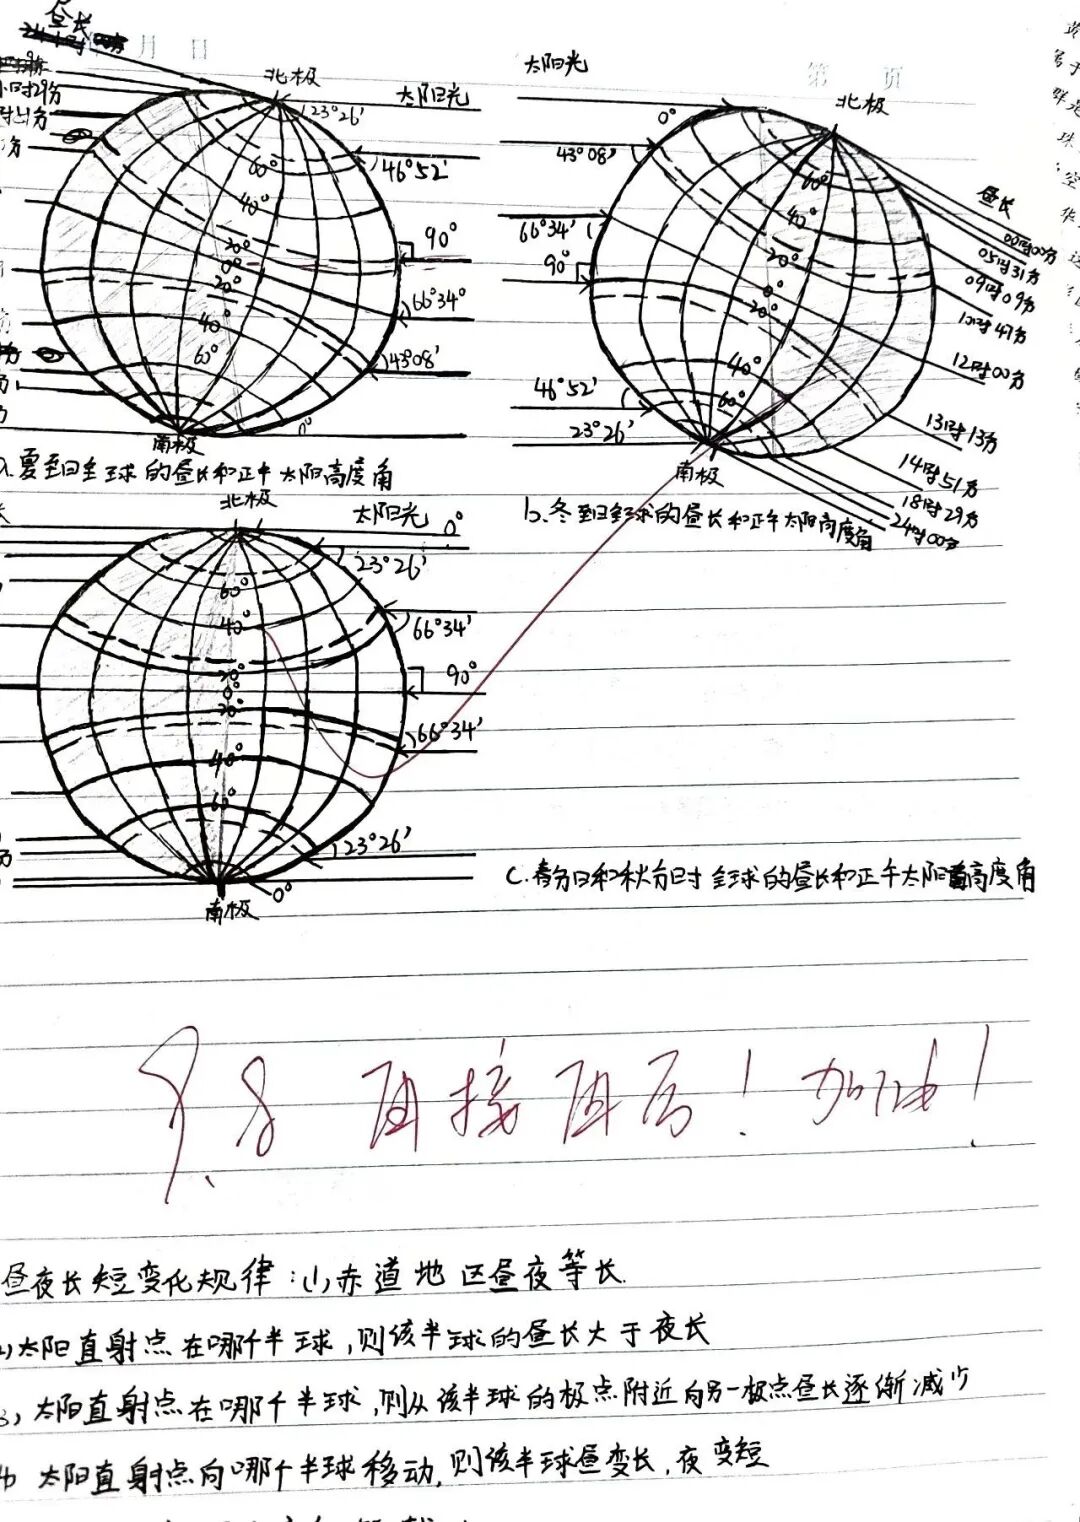 昼长
月 日
第 页
北极
太阳光
23°26′
46°52′
90°
66°34′
43°08′
0°
60°
40°
20°
0°
20°
40°
60°
南极
a.夏至日全球的昼长和正午太阳高度角
太阳光
北极
0°
43°08′
66°34′
90°
46°52′
23°26′
60°
40°
20°
0°
20°
40°
60°
南极
昼长
00时00分
05时31分
09时09分
10时47分
12时00分
13时13分
14时51分
18时29分
24时00分
b.冬至日全球的昼长和正午太阳高度角
北极
太阳光
0°
23°26′
66°34′
90°
66°34′
23°26′
0°
60°
40°
20°
0°
20°
40°
60°
南极
c.春分日和秋分日时全球的昼长和正午太阳高度角
加油!
昼夜长短变化规律:(1)赤道地区昼夜等长.
太阳直射点在哪个半球,则该半球的昼长大于夜长
3)太阳直射点在哪个半球,则从该半球的极点附近向另一极点昼长逐渐减少
太阳直射点向哪个半球移动,则该半球昼变长,夜变短